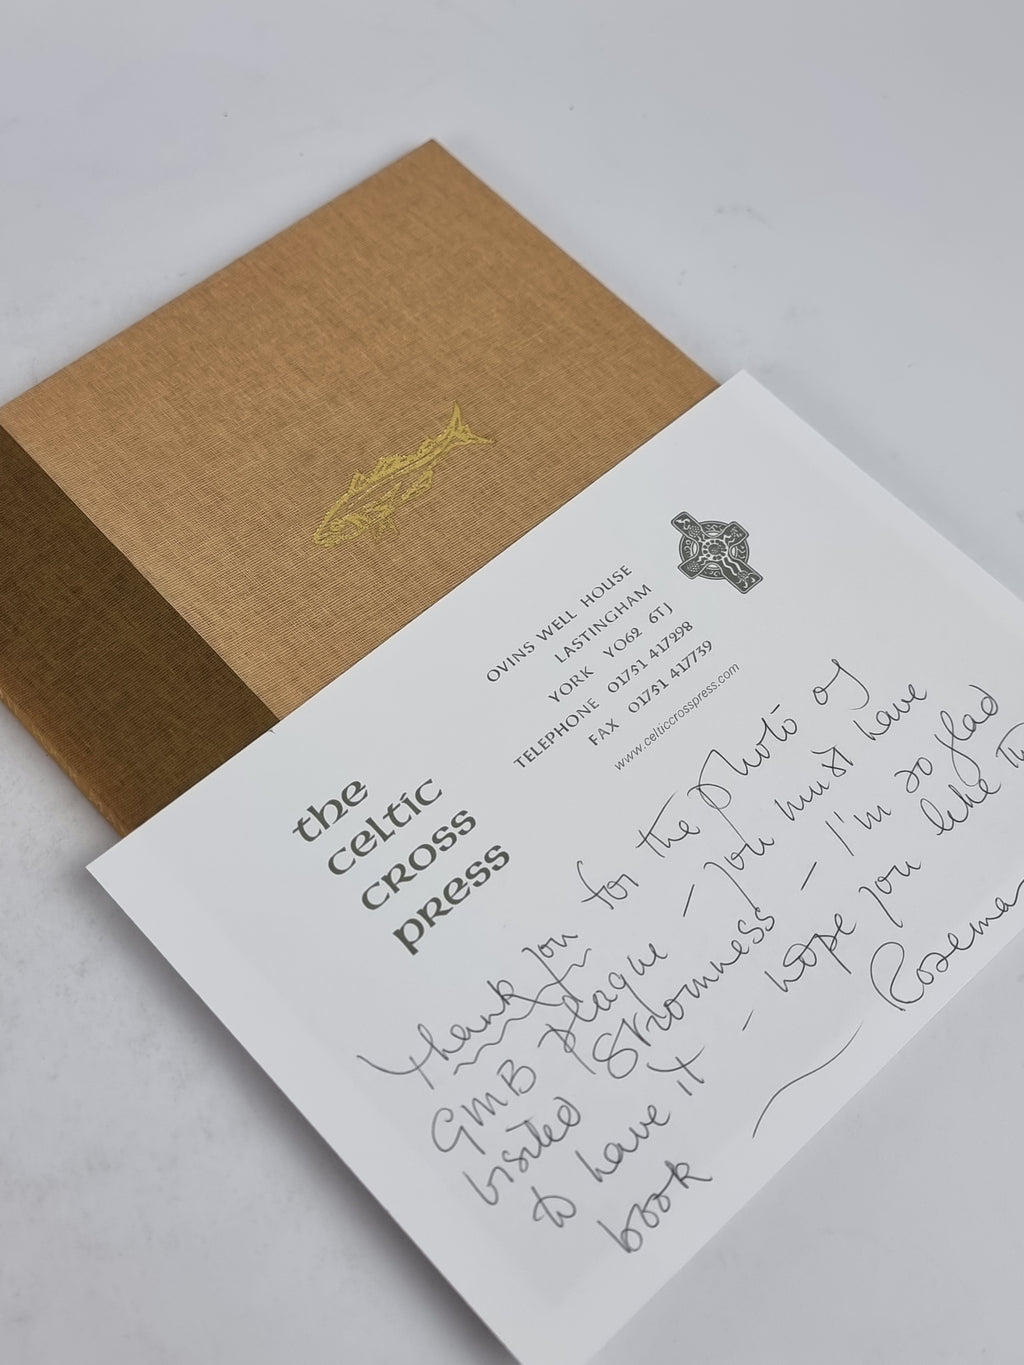 the
celtic
cross
press
OVINS WELL HOUSE
LASTINGHAM
YORK YO62 6TJ
TELEPHONE 01751 417298
FAX 01751 417739
www.celticcrosspress.com
Thank you for the photo of
GMB plaque – you must have
visited Stromness – I'm so glad
to have it – hope you like
book